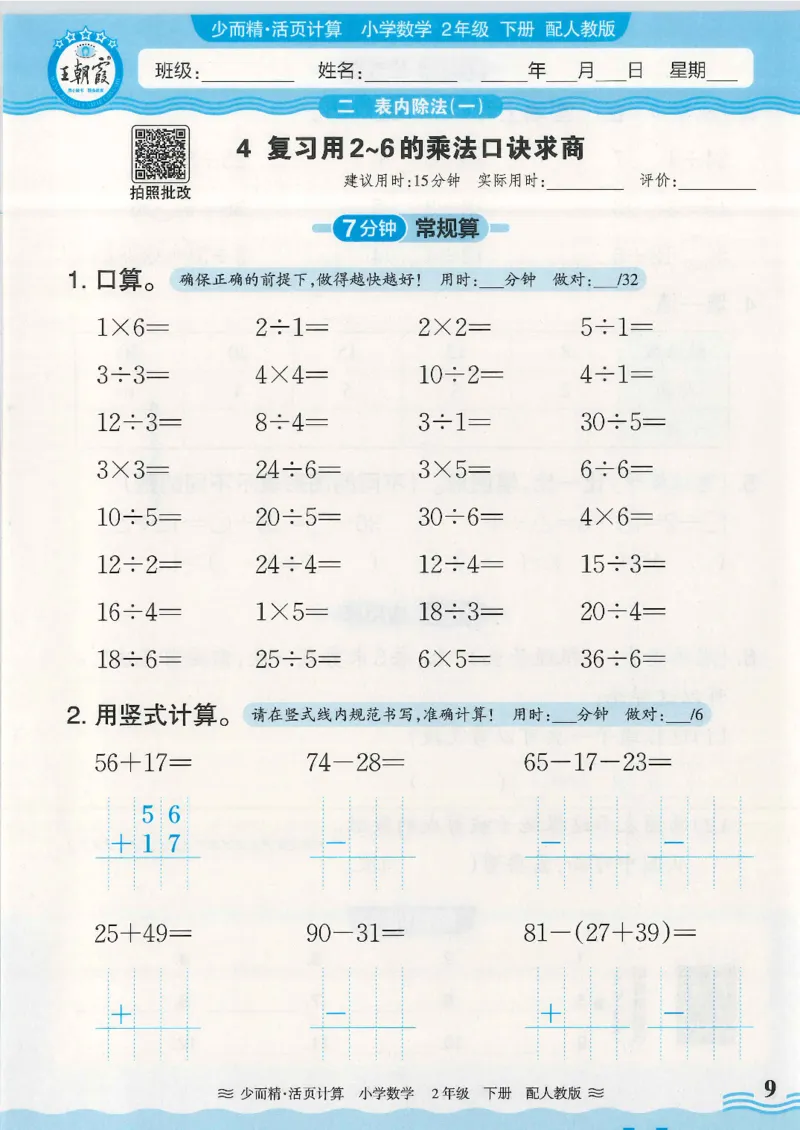 少而精·活页计算 小学数学 2年级 下册 配人教版
王朝霞
班级:________ 姓名:________ ____年__月__日 星期__
二 表内除法(一)
4 复习用2~6的乘法口诀求商
拍照批改
建议用时:15分钟 实际用时:________ 评价:________
7分钟 常规算
1. 口算。 确保正确的前提下,做得越快越好! 用时:__分钟 做对:__/32
1×6= 2÷1= 2×2= 5÷1=
3÷3= 4×4= 10÷2= 4÷1=
12÷3= 8÷4= 3÷1= 30÷5=
3×3= 24÷6= 3×5= 6÷6=
10÷5= 20÷5= 30÷6= 4×6=
12÷2= 24÷4= 12÷4= 15÷3=
16÷4= 1×5= 18÷3= 20÷4=
18÷6= 25÷5= 6×5= 36÷6=
2. 用竖式计算。 请在竖式线内规范书写,准确计算! 用时:__分钟 做对:__/6
56+17= 74-28= 65-17-23=
5 6
+ 1 7 - - -
25+49= 90-31= 81-(27+39)=
+ - + -
少而精·活页计算 小学数学 2年级 下册 配人教版
9